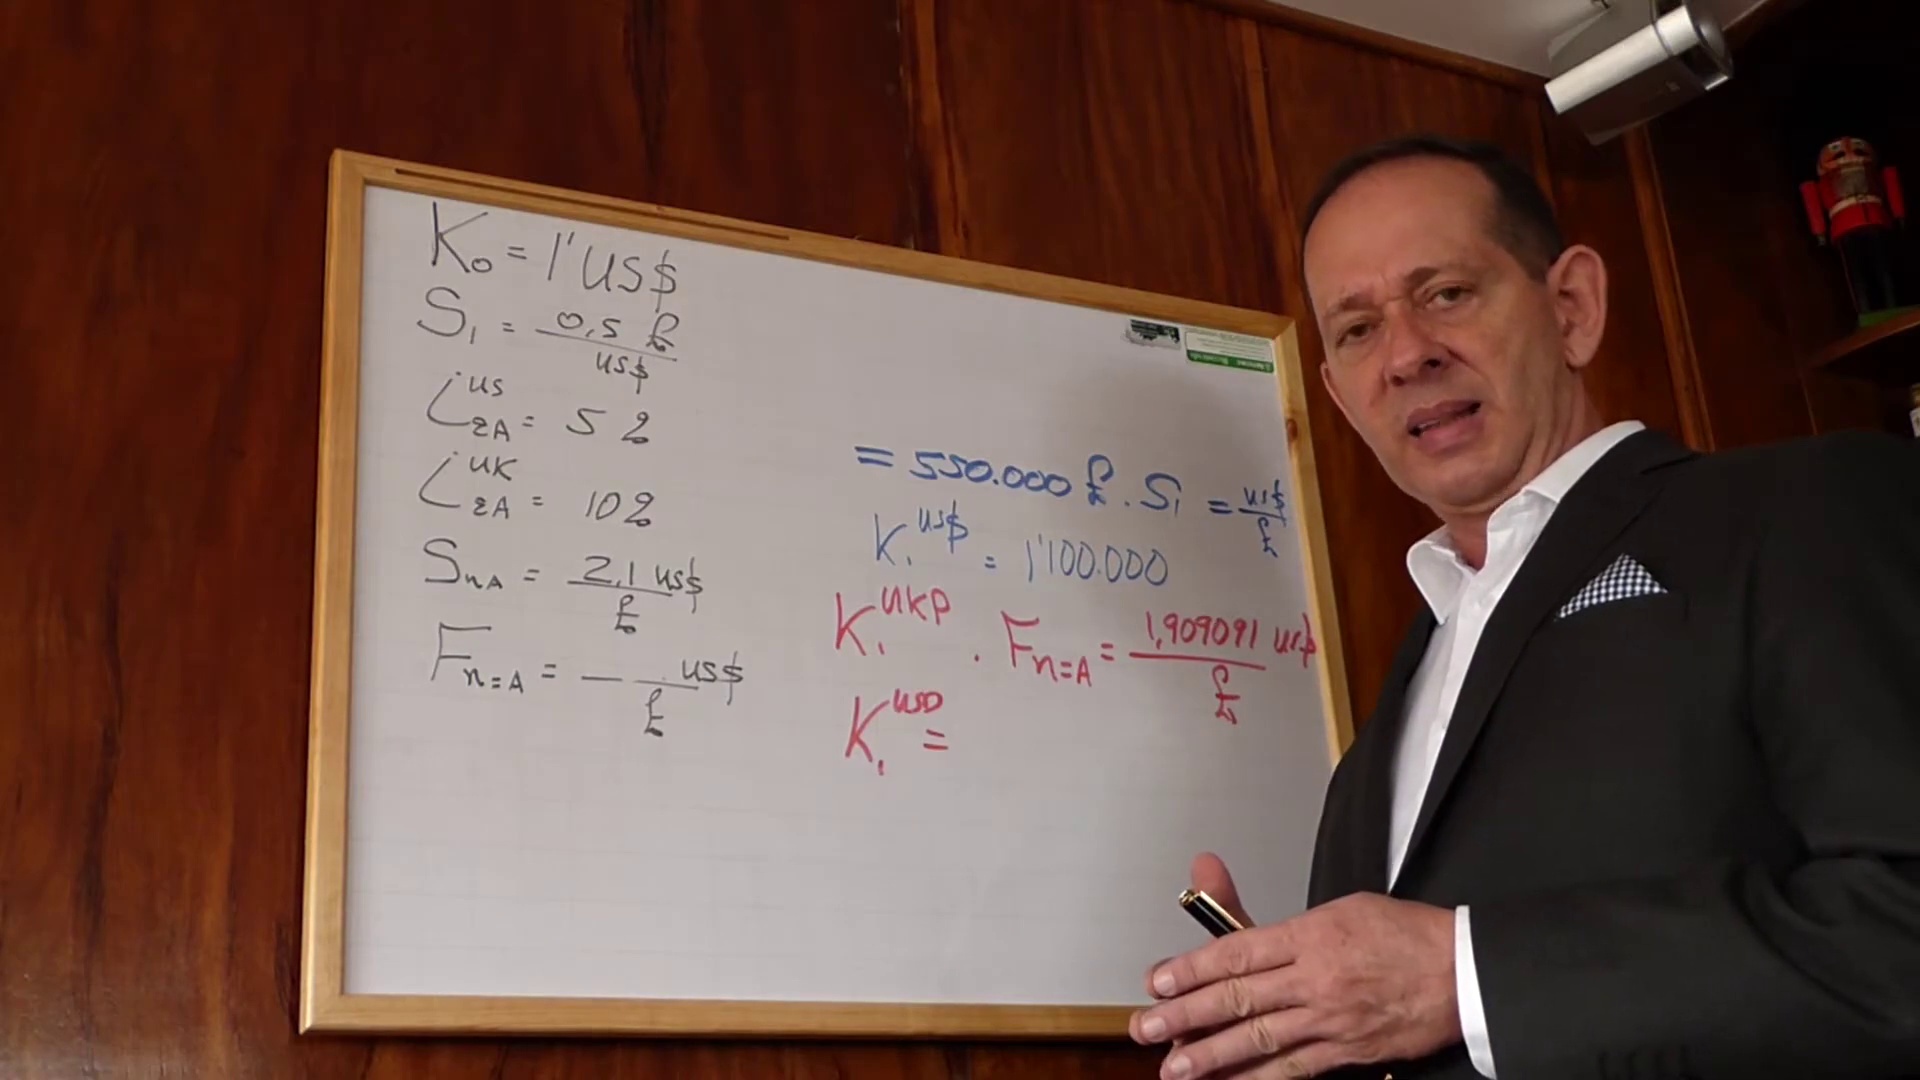 K₀ = 1' US$
S₁ = 0,5 £
US$
i US
εA = 5 %
i UK
εA = 10 %
SnA = 2,1 US$
£
Fn=A = — . US$
£
= 550.000 £ . S₁ = US$
£
K₁ US$ = 1'100.000
K₁ UKP . Fn=A = 1,909091 US$
£
K₁ USD =